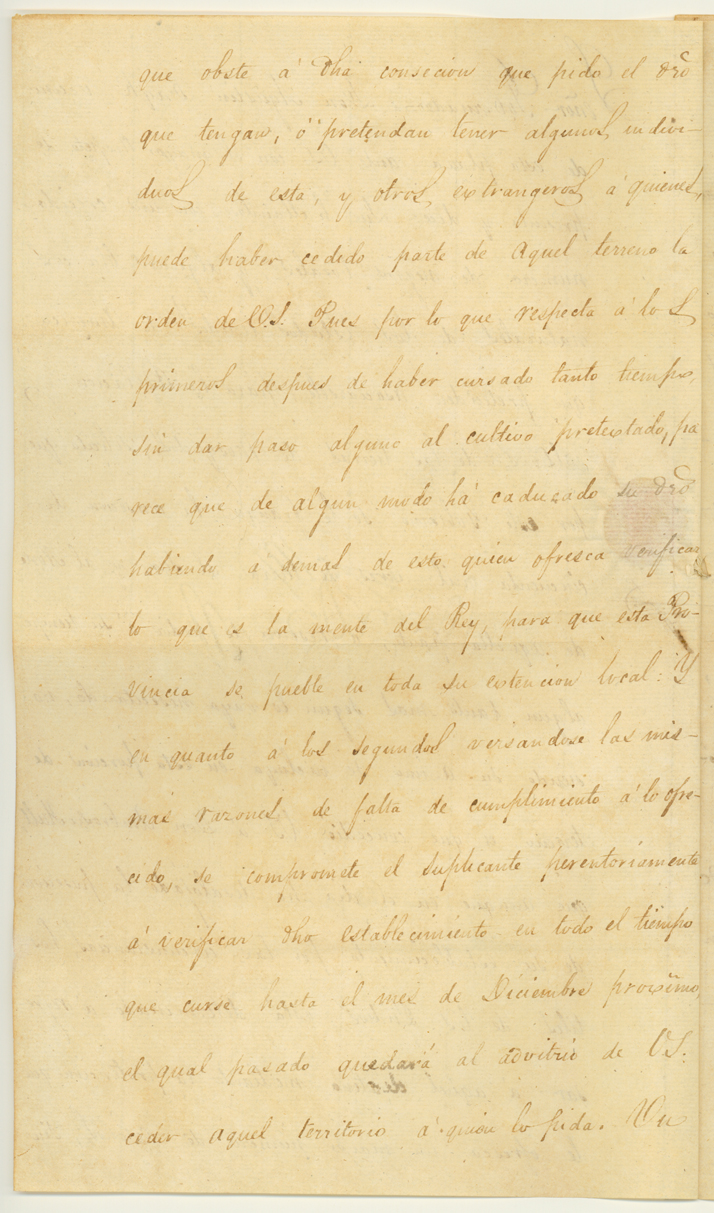 que obste á dha consecion que pido el dro
que tengan, ó pretendan tener algunos indivi-
duos de esta, y otros extrangeros á quienes,
puede haber cedido parte de aquel terreno la
orden de V.S. Pues por lo que respecta á los
primeros despues de haber cursado tanto tiempo,
sin dar paso alguno al cultivo pretextado, pa
rece que de algun modo há caducado su dro
habiendo a demas de esto quien ofresca verificar
lo que es la mente del Rey, para que esta Pro-
vincia se pueble en toda su extencion local: Y
en quanto á los segundos versandose las mis-
mas razones de falta de cumplimiento á lo ofre-
cido, se compromete el suplicante perentoriamente
á verificar dho establecimiento en todo el tiempo
que curse hasta el mes de Diciembre proximo,
el qual pasado quedará al advitrio de VS.
ceder aquel territorio á quien lo pida.